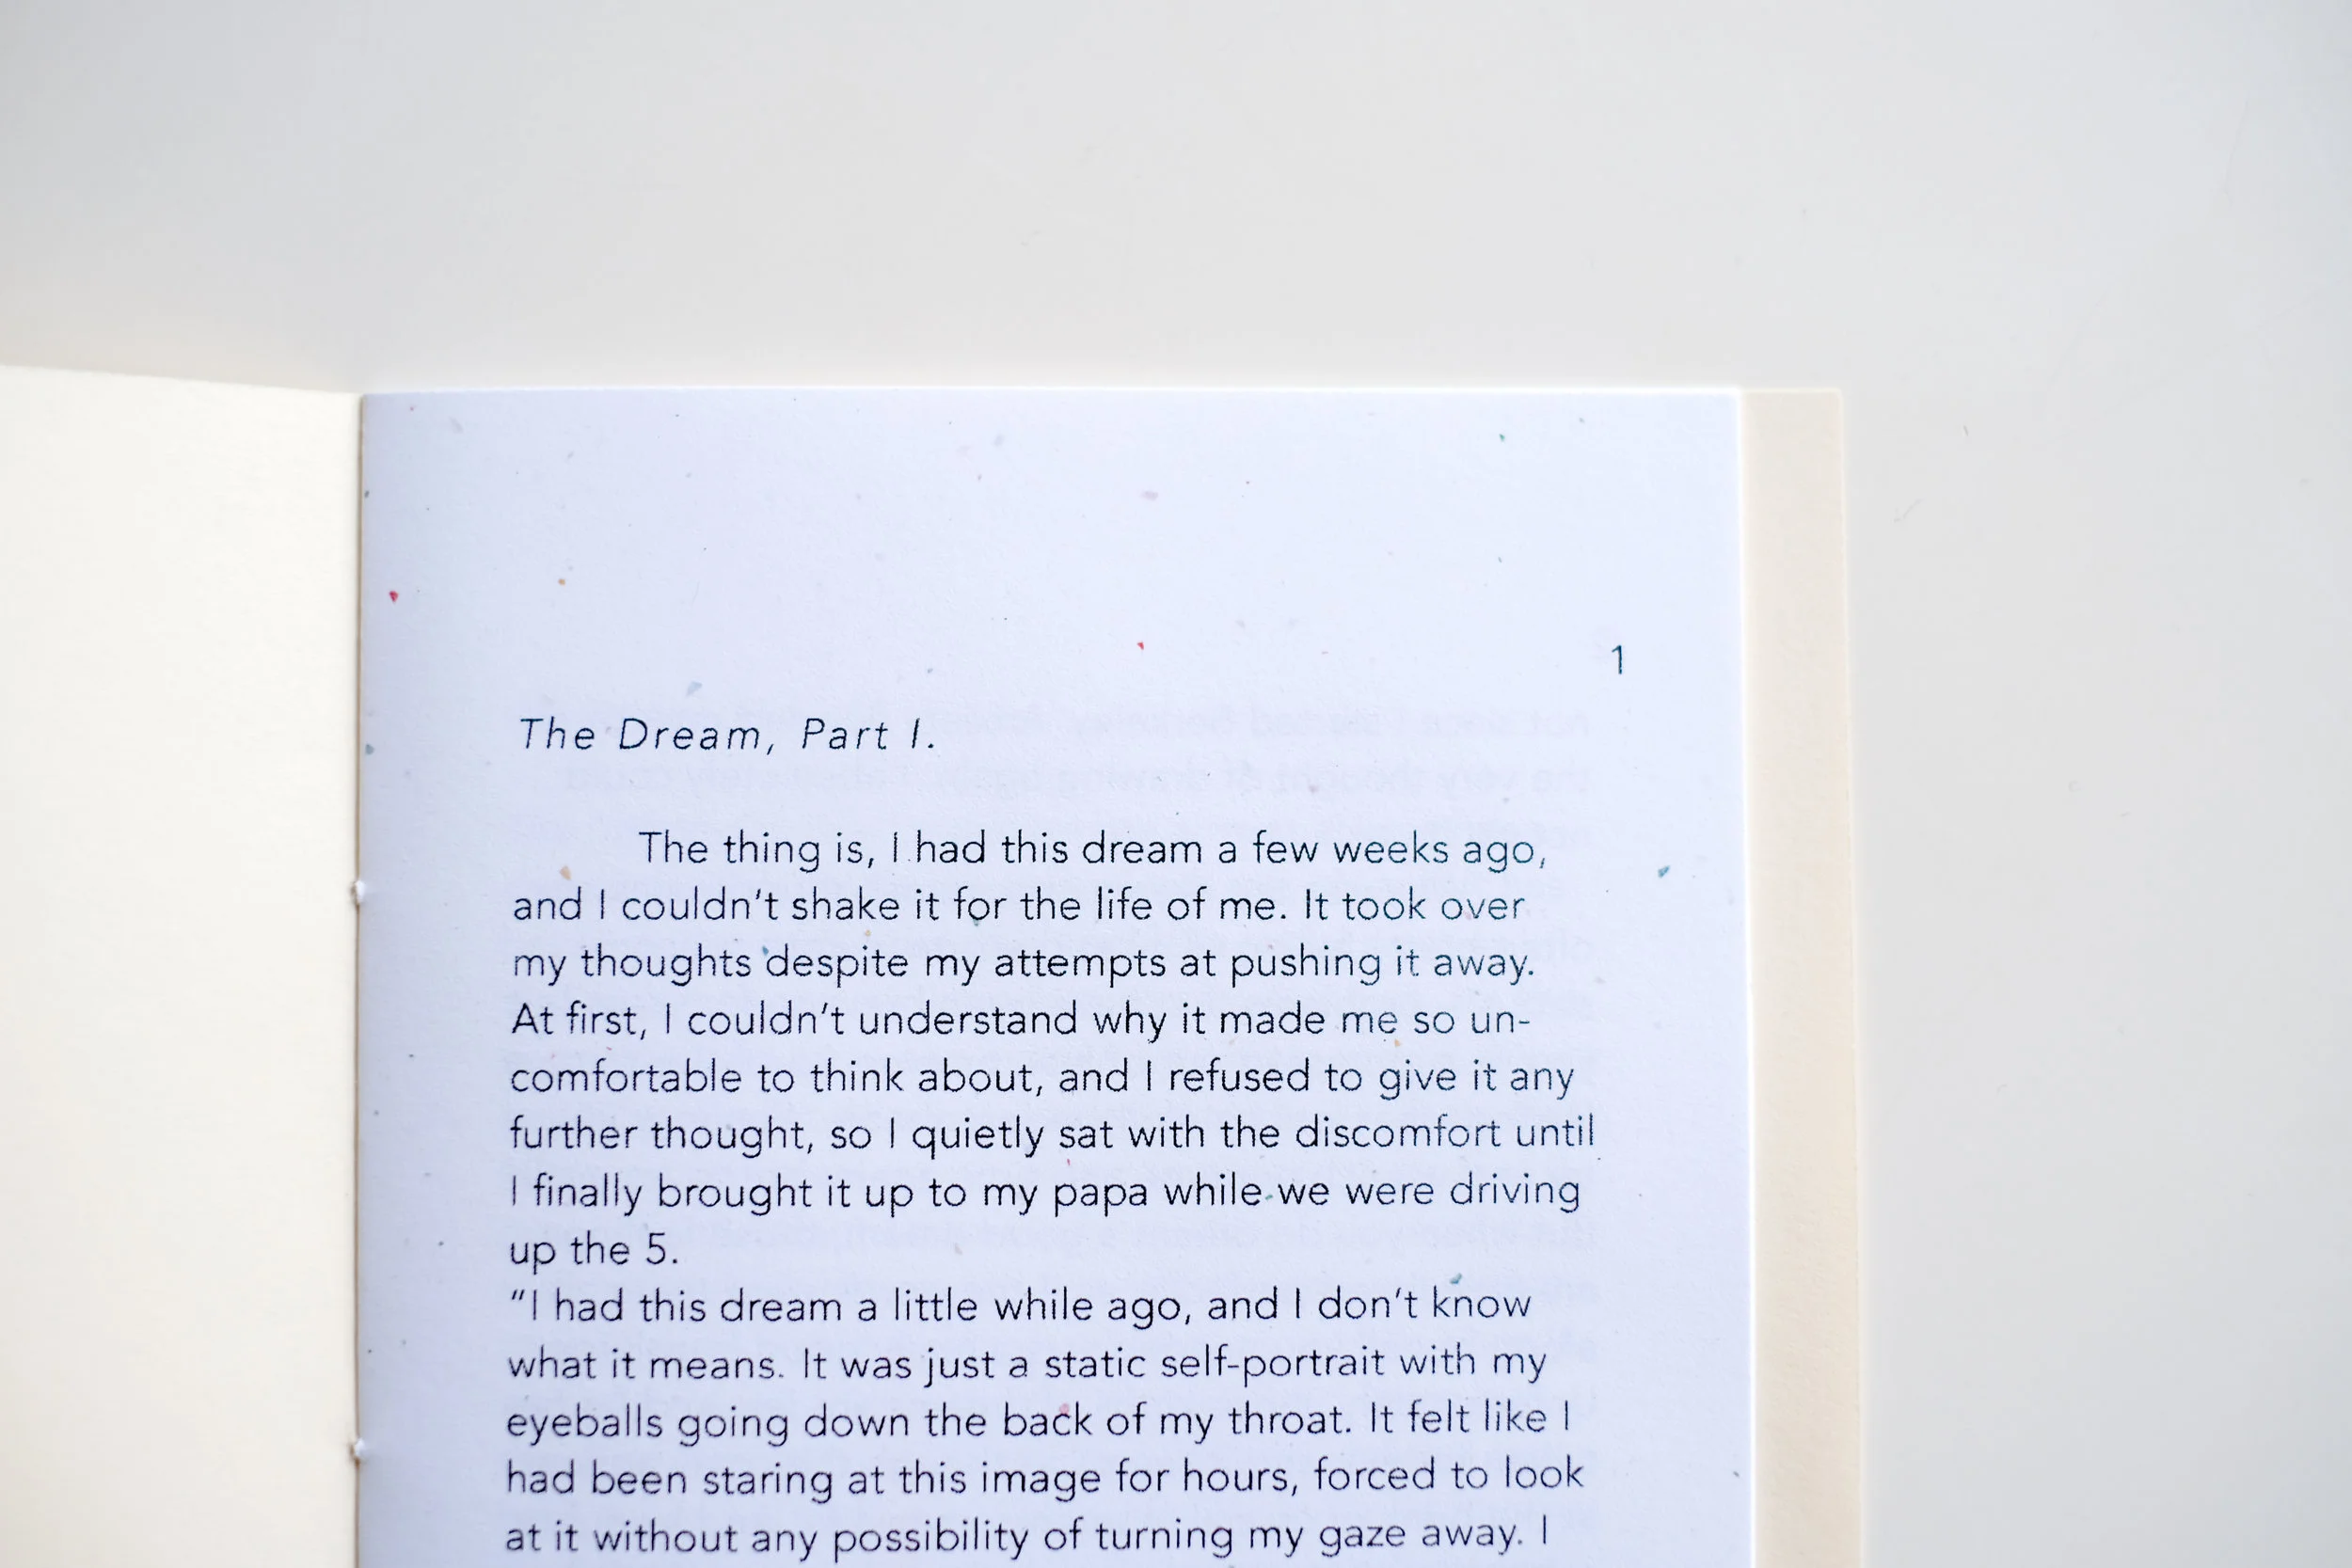 1
The Dream, Part I.
The thing is, I had this dream a few weeks ago,
and I couldn't shake it for the life of me. It took over
my thoughts despite my attempts at pushing it away.
At first, I couldn't understand why it made me so un-
comfortable to think about, and I refused to give it any
further thought, so I quietly sat with the discomfort until
I finally brought it up to my papa while we were driving
up the 5.
“I had this dream a little while ago, and I don't know
what it means. It was just a static self-portrait with my
eyeballs going down the back of my throat. It felt like I
had been staring at this image for hours, forced to look
at it without any possibility of turning my gaze away. I